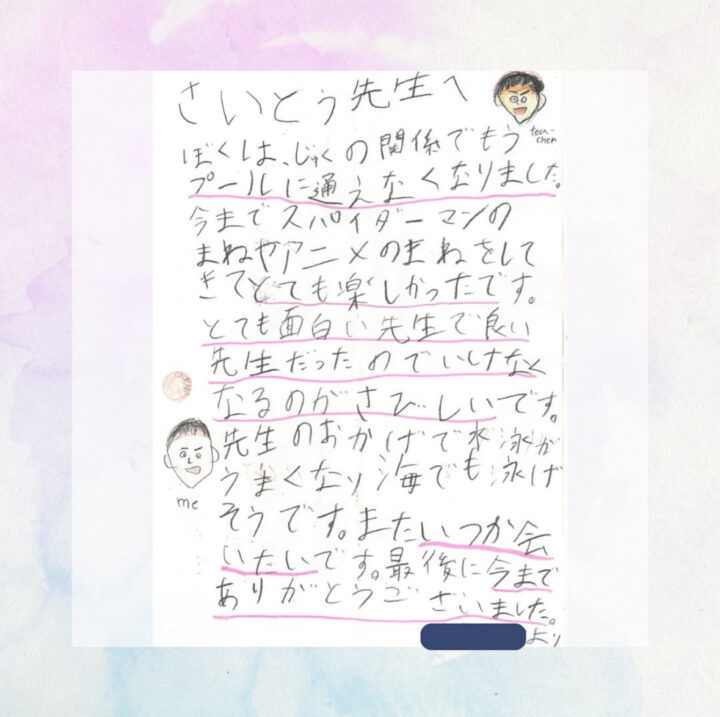 さいとう先生へ
tea-
cher
ぼくは、じゅくの関係でもう
プールに通えなくなりました。
今までスパイダーマンの
まねやアニメのまねをして
きてとても楽しかったです。
とても面白い先生で良い
先生だったのでいけなく
なるのがさびしいです。
先生のおかげで水泳が
うまくなり海でも泳げ
me
そうです。またいつか会
いたいです。最後に今まで
ありがとうございました。
より